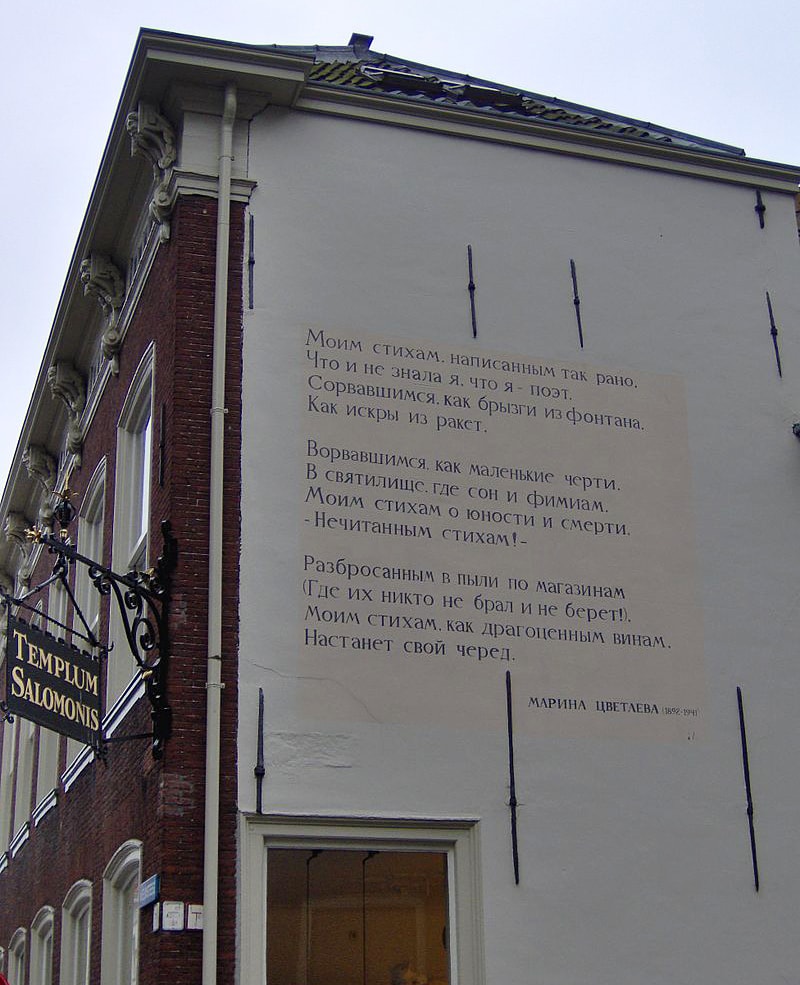 Моим стихам, написанным так рано,
Что и не знала я, что я - поэт,
Сорвавшимся, как брызги из фонтана,
Как искры из ракет.
Ворвавшимся, как маленькие черти,
В святилище, где сон и фимиам,
Моим стихам о юности и смерти,
- Нечитанным стихам! -
Разбросанным в пыли по магазинам
(Где их никто не брал и не берет!),
Моим стихам, как драгоценным винам,
Настанет свой черед.
МАРИНА ЦВЕТАЕВА (1892-1941)
TEMPLUM
SALOMONIS